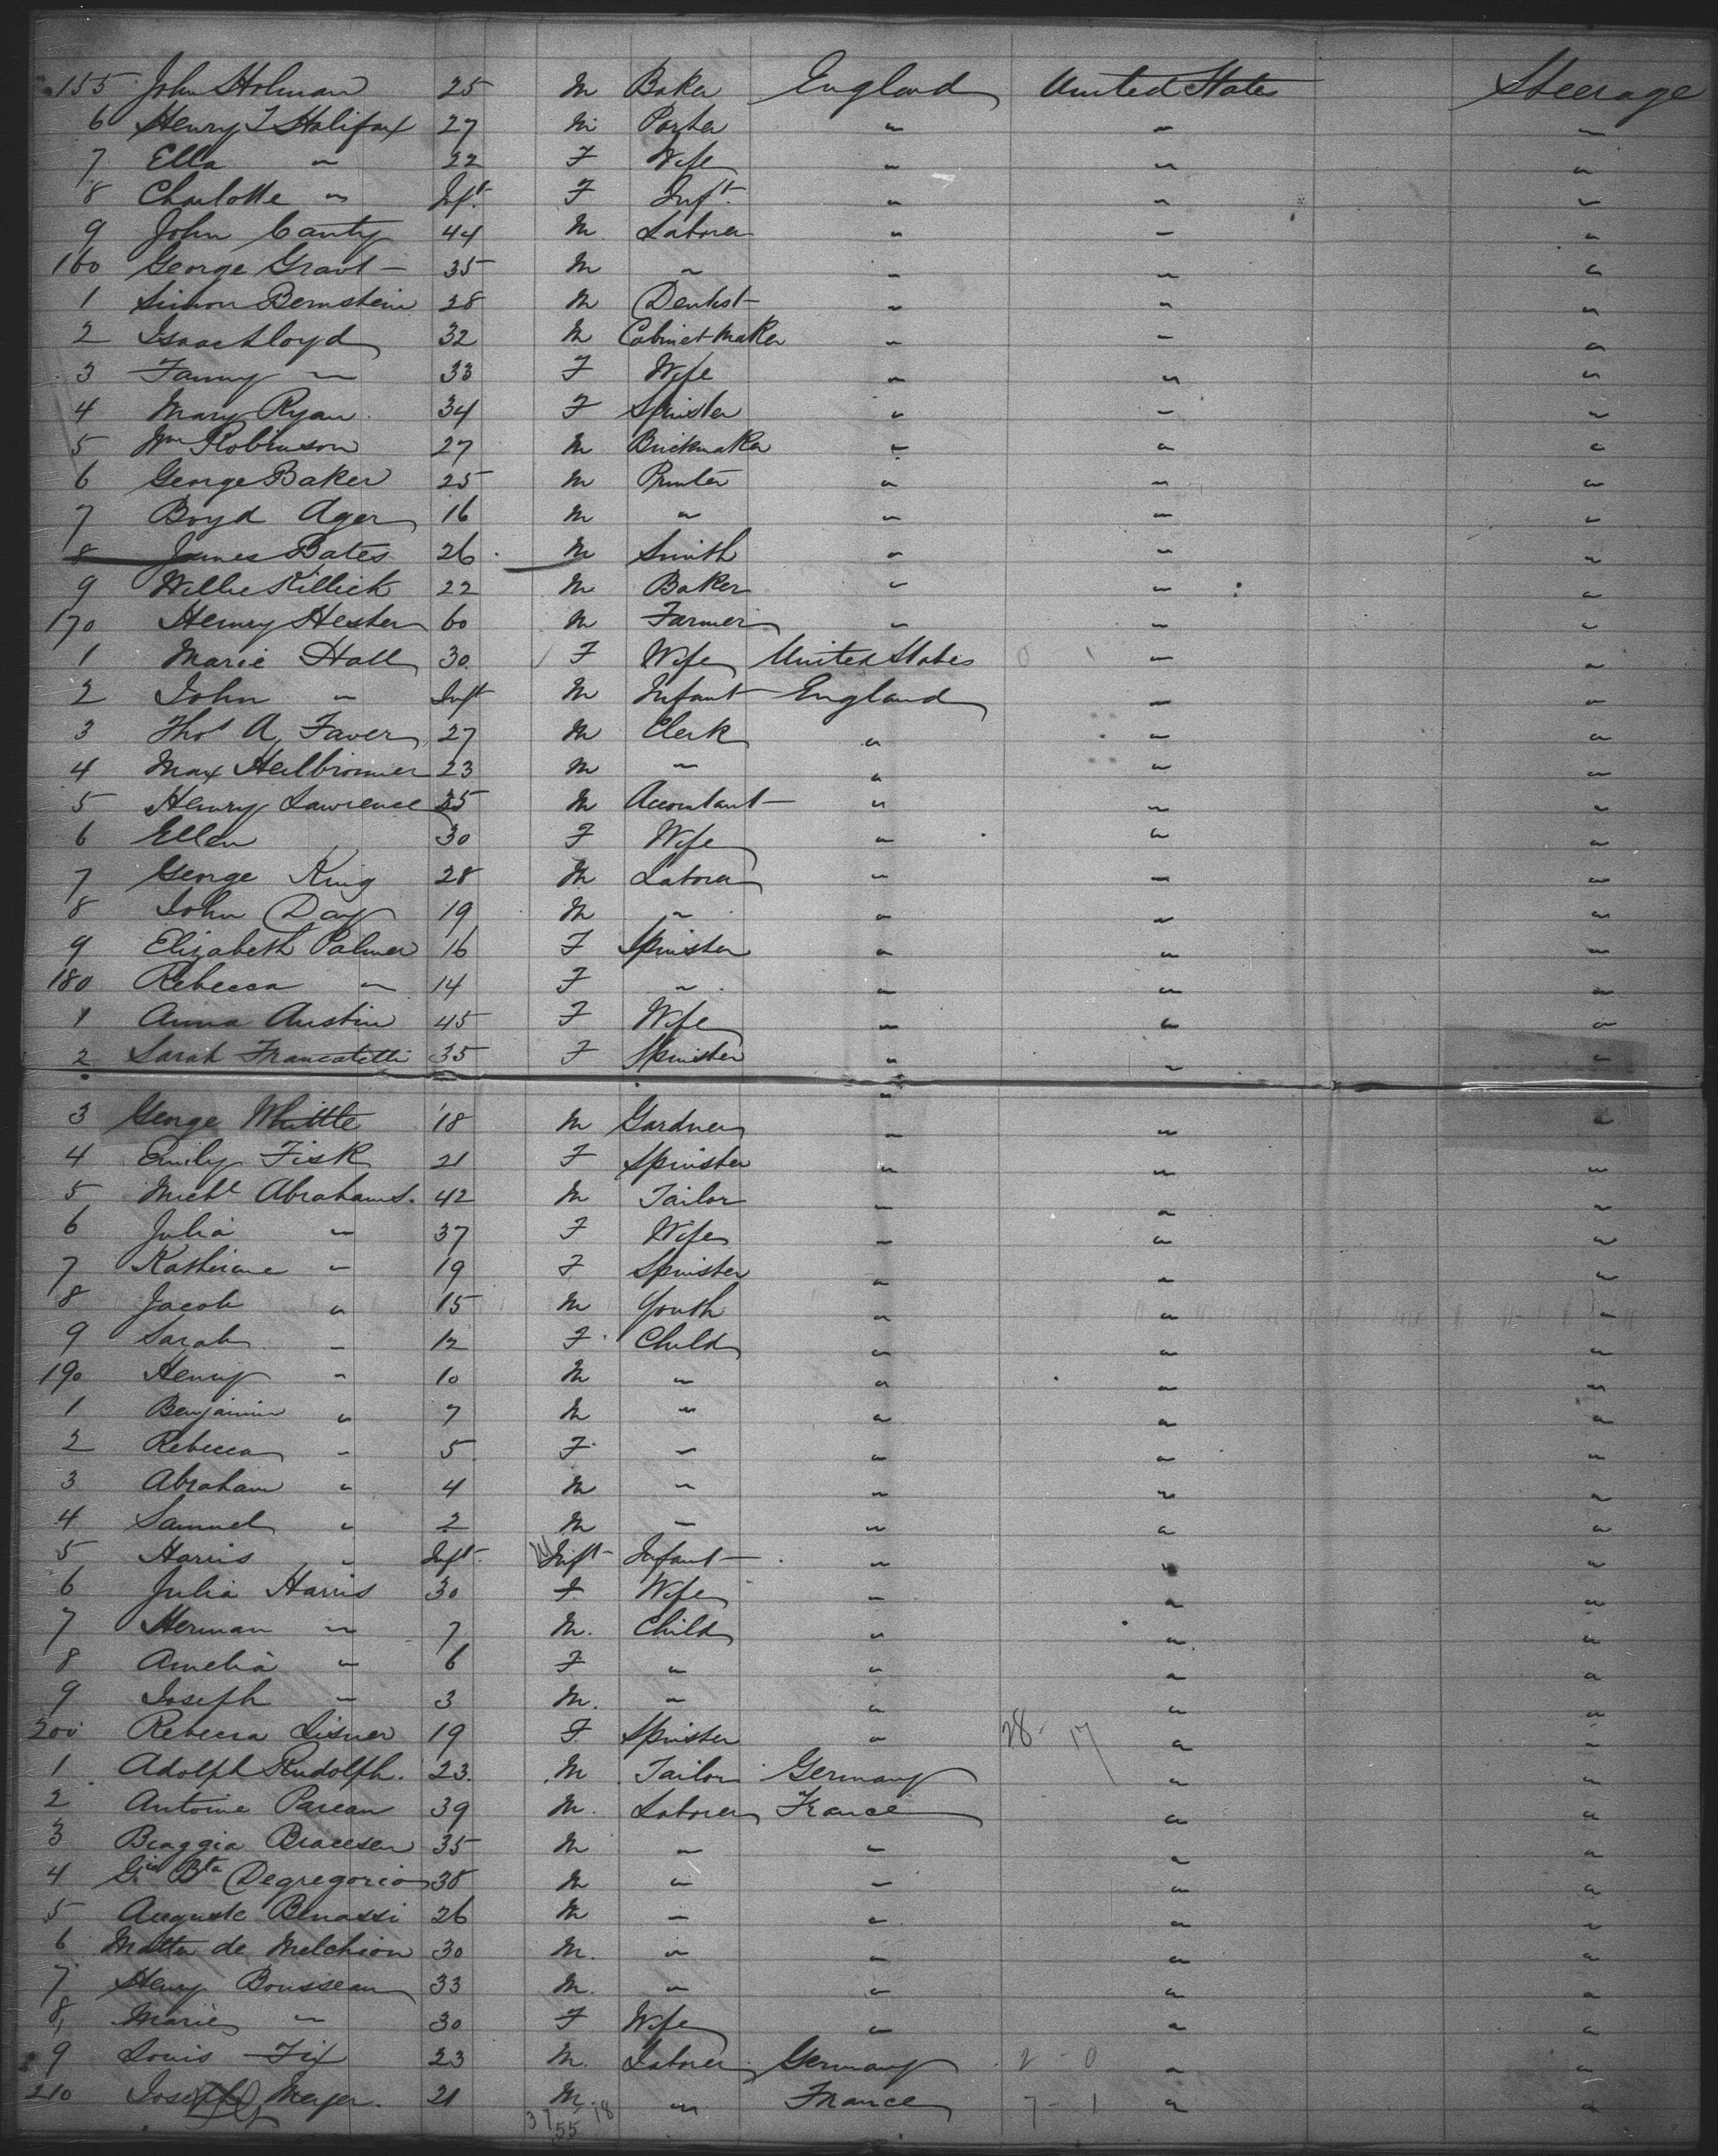 155 John Holman 25 M Baker England United States Steerage
6 Henry T Halifax 27 M Porter " " "
7 Ella " 22 F Wife " " "
8 Charlotte " Inft. F Inft. " " "
9 John Canty 44 M Laborer " " "
160 George Grant 35 M " " " "
1 Simon Bernstein 28 M Dentist " " "
2 Isaac Lloyd 32 M Cabinet Maker " " "
3 Fanny " 33 F Wife " " "
4 Mary Ryan 34 F Spinster " " "
5 Wm Robinson 27 M Brickmaker " " "
6 George Baker 25 M Printer " " "
7 Boyd Ager 16 M " " " "
8 James Bates 26 M Smith " " "
9 Willie Killick 22 M Baker " " "
170 Henry Hester 60 M Farmer " " "
1 Marie Hall 30 F Wife United States " "
2 John " Inft M Infant England " "
3 Thos A. Faver 27 M Clerk " " "
4 Max Heilbronner 23 M " " " "
5 Henry Lawrence 35 M Accountant " " "
6 Ellen 30 F Wife " " "
7 George King 28 M Laborer " " "
8 John Day 19 M " " " "
9 Elizabeth Palmer 16 F Spinster " " "
180 Rebecca " 14 F " " " "
1 Anna Austin 45 F Wife " " "
2 Sarah Francatelli 35 F Spinster " " "
3 George Whittle 18 M Gardner " " "
4 Emily Fisk 21 F Spinster " " "
5 Michl Abrahams. 42 M Tailor " " "
6 Julia " 37 F Wife " " "
7 Katherine " 19 F Spinster " " "
8 Jacob " 15 M Youth " " "
9 Sarah " 12 F Child " " "
190 Henry " 10 M " " " "
1 Benjamin " 7 M " " " "
2 Rebecca " 5 F " " " "
3 Abraham " 4 M " " " "
4 Samuel " 2 M " " " "
5 Harris " Inft. Inft Infant " " "
6 Julia Harris 30 F Wife " " "
7 Herman " 7 M. Child " " "
8 Amelia " 6 F " " " "
9 Joseph " 3 M. " " " "
200 Rebecca Lisner 19 F. Spinster " 28 - 17 " "
1 Adolph Rudolph. 23. M. Tailor Germany " "
2 Antoine Parean 39 M. Laborer France " "
3 Biaggia 35 M " " " "
4 Gio Bta Degregorio 38 M " " " "
5 Auguste Benassi 26 M " " " "
6 Matteo de Melchion 30 M. " " " "
7 Henry Bousseau 33 M. " " " "
8 Marie " 30 F Wife " " "
9 Louis Fix 23 M. Laborer Germany 2 - 0 " "
210 Joseph Meyer. 21 M. " France 7 - 1 " "
37 55 18